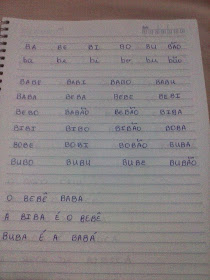 BA BE BI BO BU BÃO
ba be bi bo bu bão
BABE BABI BABO BABU
BABA BEBA BEBE BEBI
BEBO BABÃO BEBÃO BIBA
BIBI BIBO BIBÃO BOBA
BOBE BOBI BOBÃO BUBA
BUBO BUBU BUBE BUBÃO
O BEBÊ BABA
A BIBA É O BEBÊ
BUBA É A BABÁ